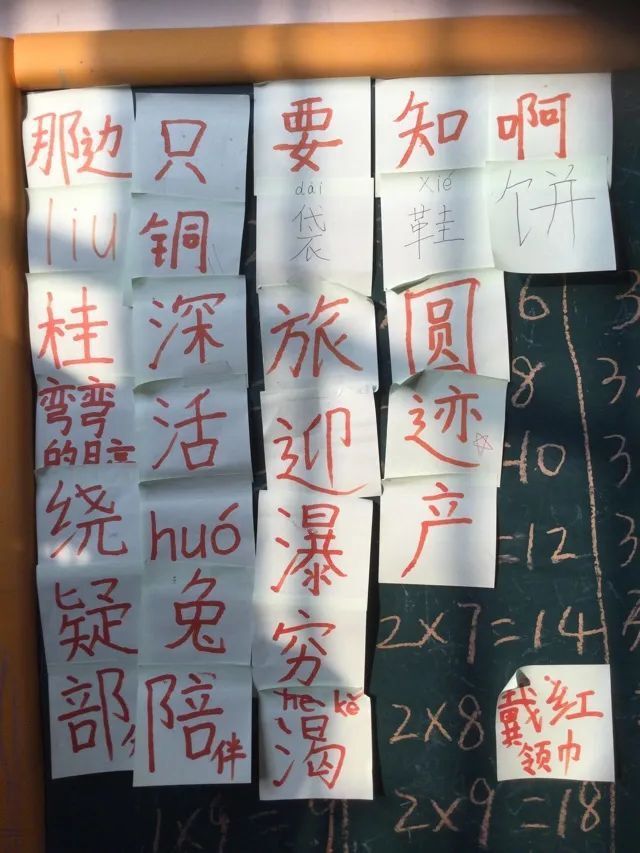 那边 只 要 知 啊
liu 铜 dái 袋 xié 鞋 饼
桂 深 旅 圆 6
弯弯的 活 迎 迹 8
绕 huó 瀑 产 40
=12
疑 兔 穷 2×7=14
部 陪伴 kě 渴 2×8 戴红领巾
1×9=9 2×9=18